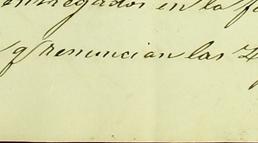 entregados en la
q renuncian las